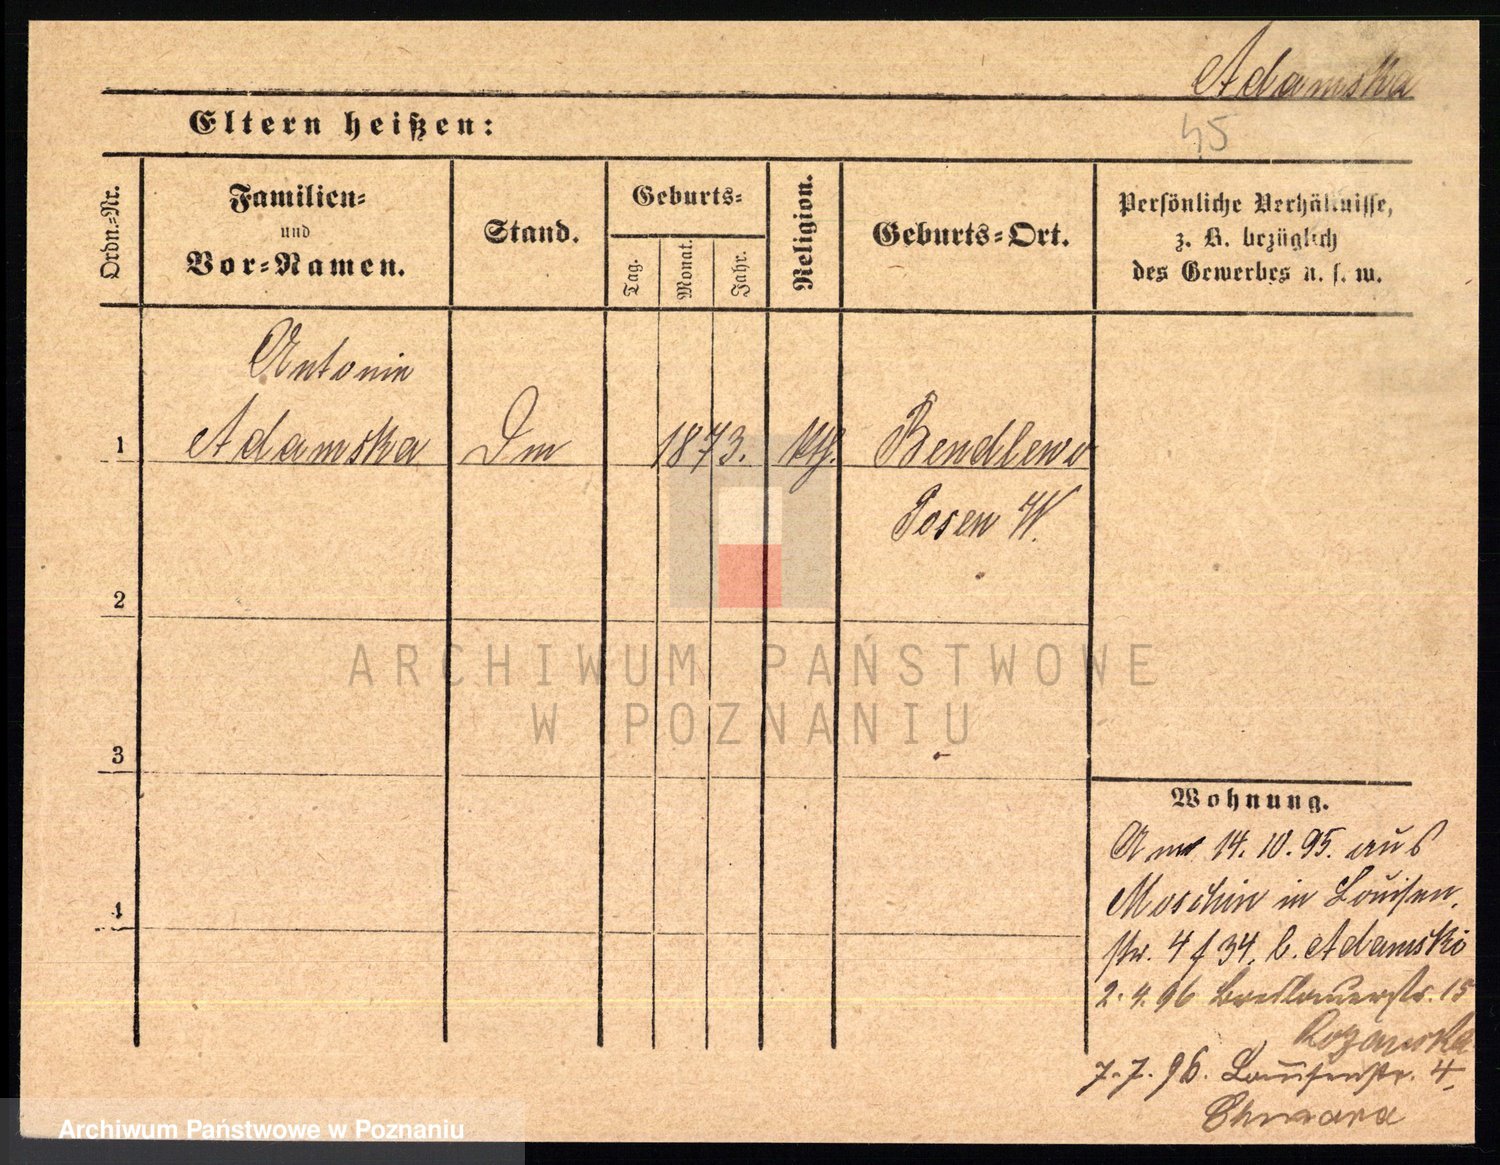 Adamska
45
Eltern heißen:
Ordn.-Nr.
Familien-
und
Vor-Namen.
Stand.
Geburts-
Tag.
Monat.
Jahr.
Religion.
Geburts-Ort.
Persönliche Verhältnisse,
z. B. bezüglich
des Gewerbes u. s. w.
Antonie
1 Adamska 1873. kth. Bendlewo
Posen W.
2
3
4
ARCHIWUM PAŃSTWOWE
W POZNANIU
Wohnung.
14.10.95. aus
Moschin in Louisen
str. 4 f 34. b. Adamski
2.4.96 Breslauerstr. 15
7.7.96. Louisenstr. 4,
Archiwum Państwowe w Poznaniu